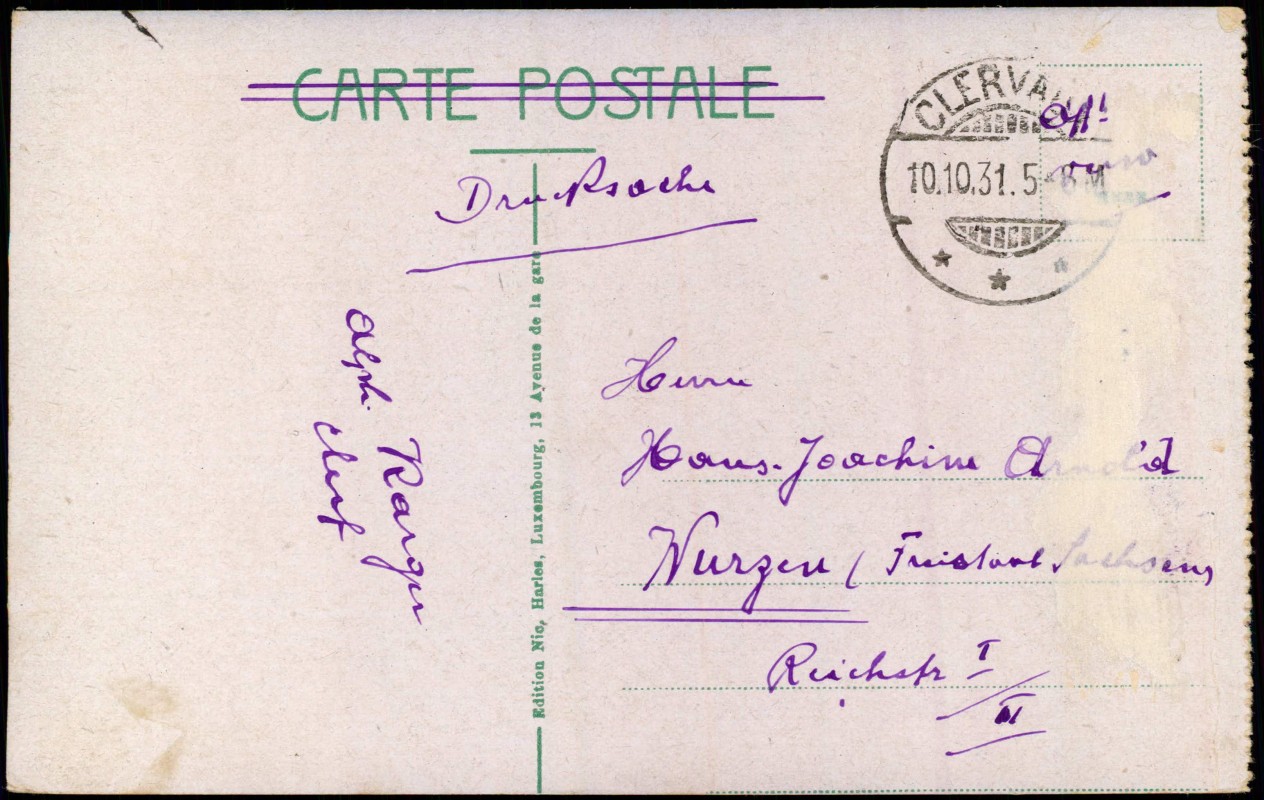 CARTE POSTALE
Drucksache
CLERVAUX
10.10.31. 5-6M
Edition Nic, Harles, Luxembourg, 13 Avenue de la gare
Alph. Karger
Clerf
Herrn
Hans-Joachim Arnold
Wurzen (Freistaat Sachsen)
Reichstr I/II